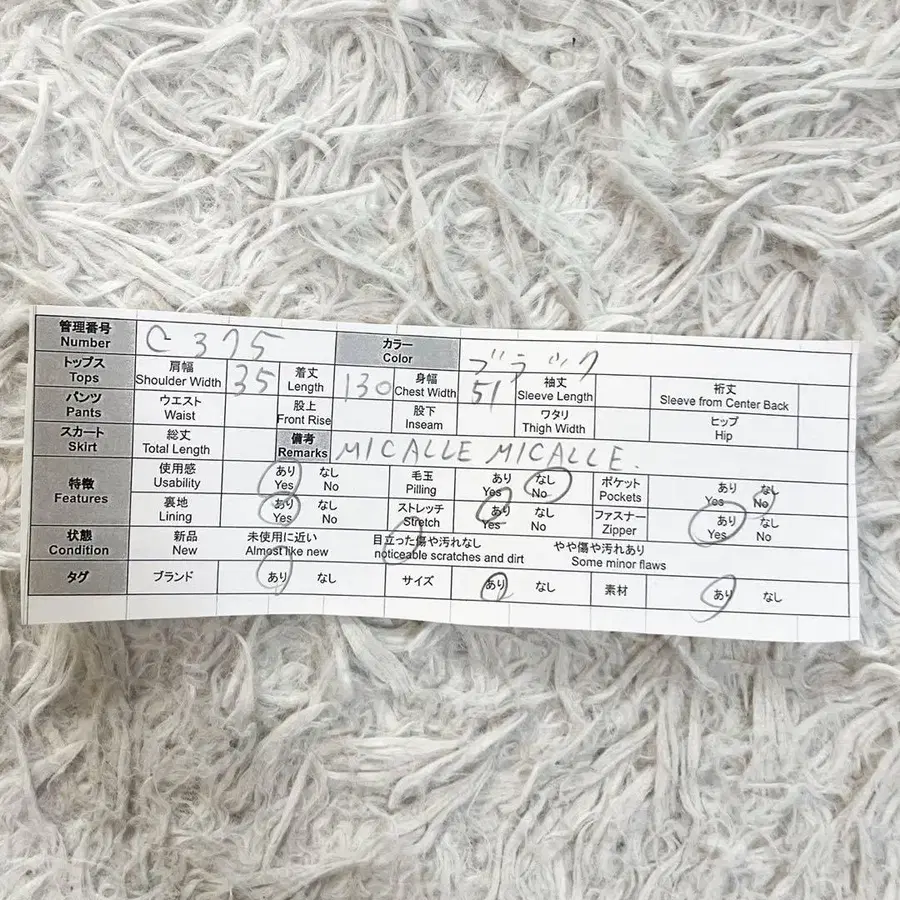 管理番号 Number C375 カラー Color ブラック
トップス Tops 肩幅 Shoulder Width 35 着丈 Length 130 身幅 Chest Width 51 袖丈 Sleeve Length 裄丈 Sleeve from Center Back
パンツ Pants ウエスト Waist 股上 Front Rise 股下 Inseam ワタリ Thigh Width ヒップ Hip
スカート Skirt 総丈 Total Length 備考 Remarks MICALLE MICALLE.
特徴 Features 使用感 Usability あり Yes なし No 毛玉 Pilling あり Yes なし No ポケット Pockets あり Yes なし No
裏地 Lining あり Yes なし No ストレッチ Stretch あり Yes なし No ファスナー Zipper あり Yes なし No
状態 Condition 新品 New 未使用に近い Almost like new 目立った傷や汚れなし noticeable scratches and dirt やや傷や汚れあり Some minor flaws
タグ ブランド あり なし サイズ あり なし 素材 あり なし